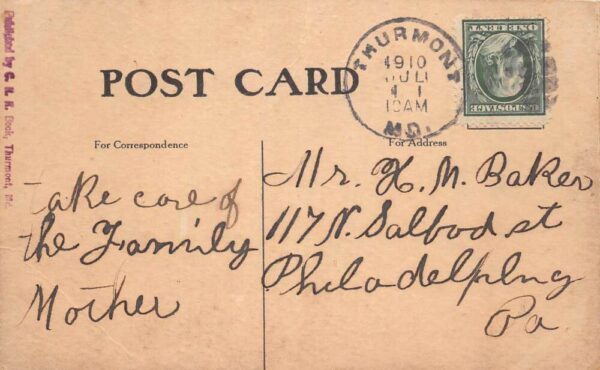 Published by C. R. K. Book, Thurmont, Md.
POST CARD
THURMONT
1910
JUL
1
10AM
MD.
ONE CENT
U.S. POSTAGE
For Correspondence
For Address
Take care of
the Family
Mother
Mr. H. M. Baker
117 N. Salbod st
Philadelphy
Pa